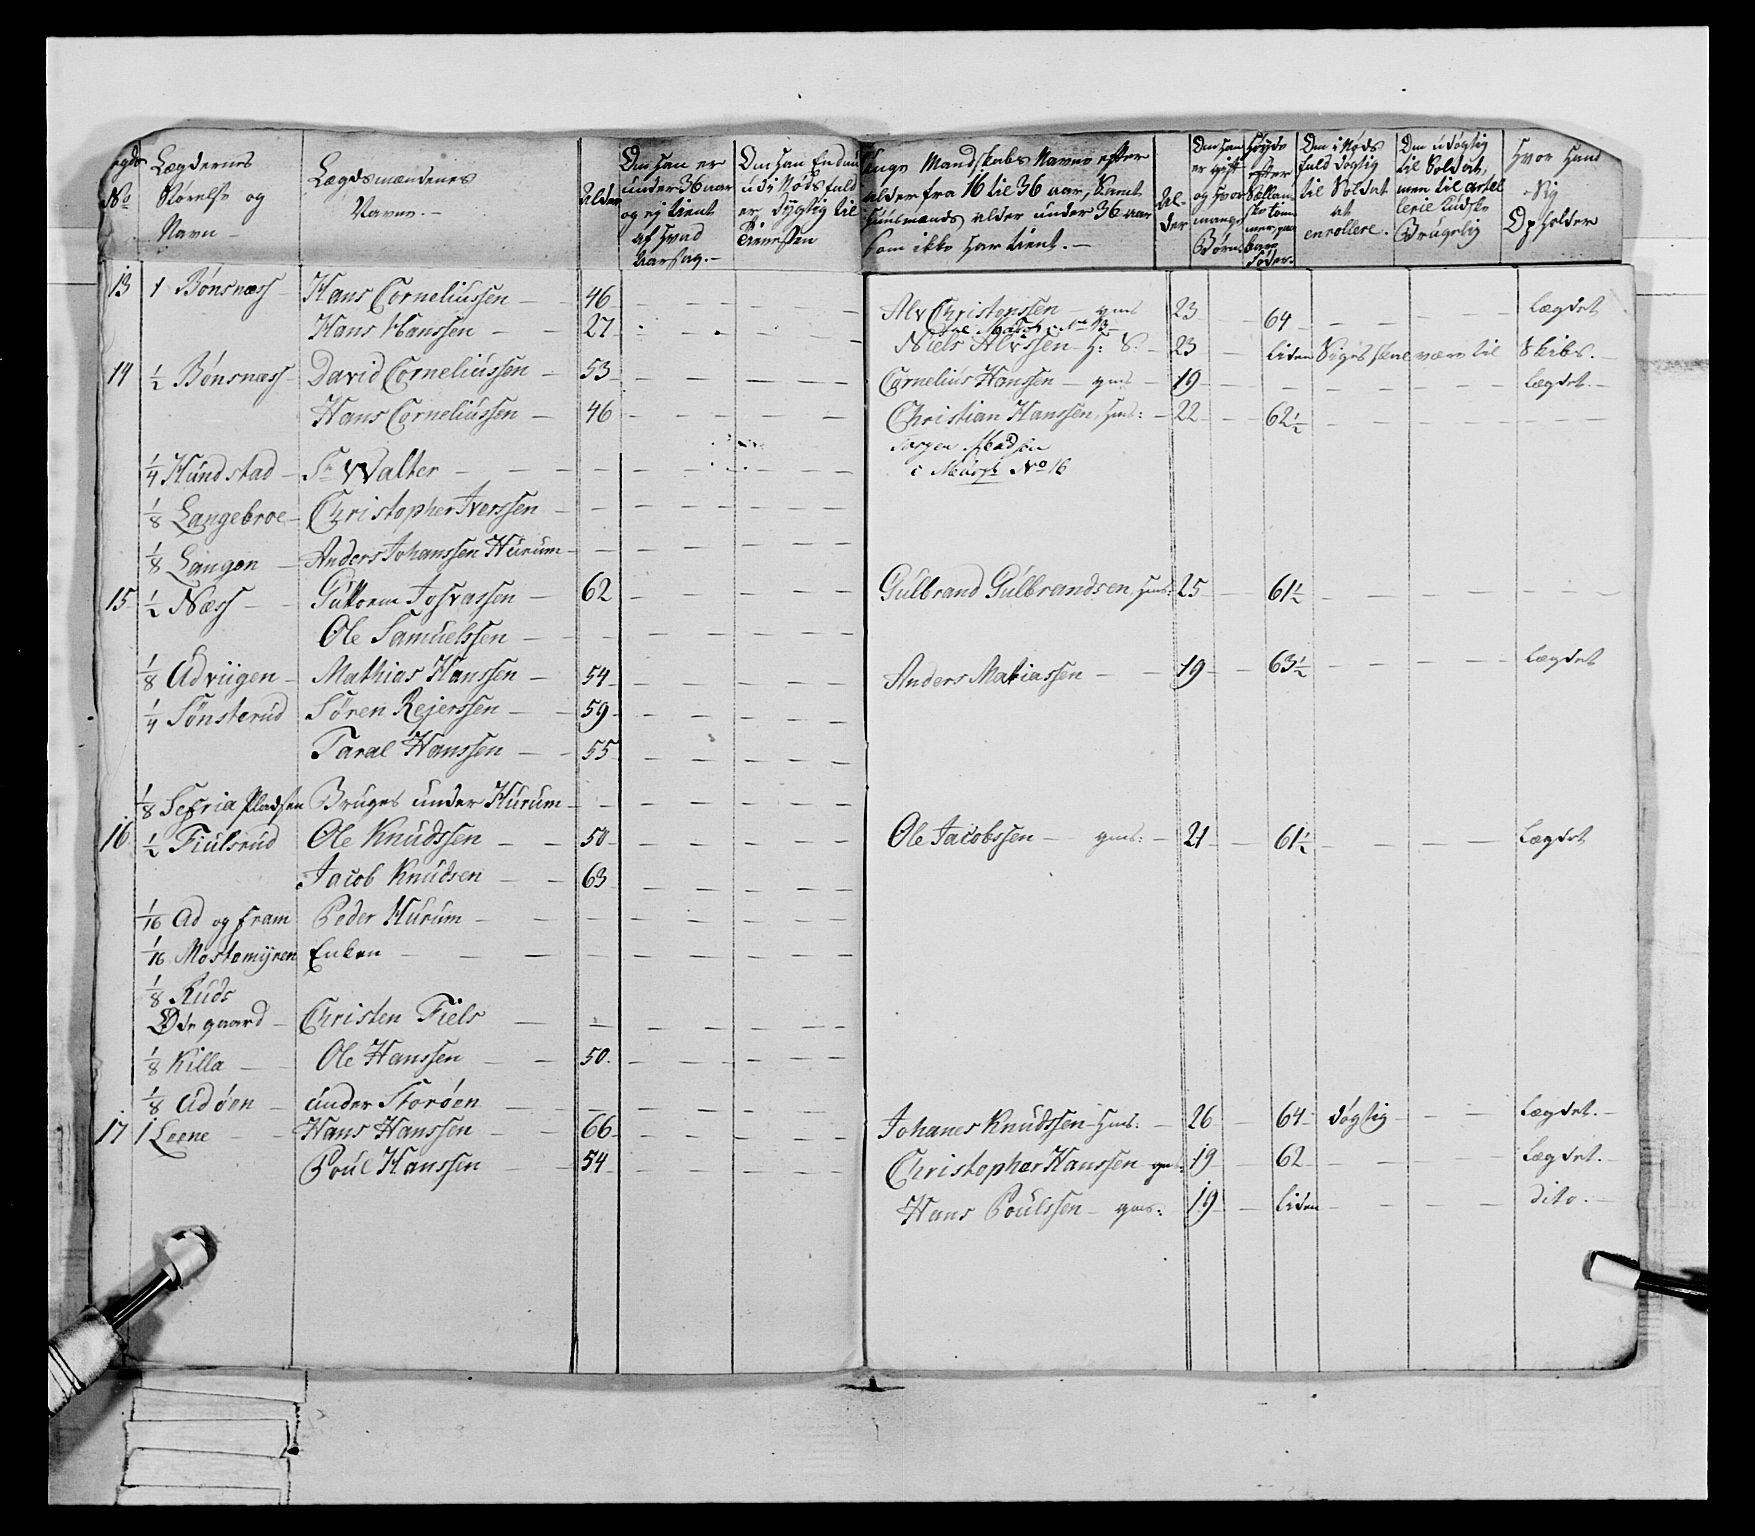 Lægdernes Størelse og Navn
Lægdsmændenes Navne.
Alder
Om han er under 36 aar og ej tient af hvad Aarsag.
Om han endnu udi Nødsfald er dygtig til Tienesten
Unge Mandskabs Navne efter alder fra 16 til 36 aar, samt Huusmænds alder under 36 aar som ikke har tient.
Alder
Om han er gift og hvor mange Børn
Om i Nødsfald døgtig til Soldat at enrollere.
Om udøgtig til Soldat, men til Brugelig
Hvor Hand Sig Opholder
13 1 Bønsnæss Hans Corneliussen 46 Alv Christenssen gms 23 64 Lægdet
Hans Hanssen 27 Niels Alvssen H: S. 23 liden Siges skal være til Skibs.
14 ½ Bønsnæss David Corneliussen 53 Cornelius Hanssen gms 19 Lægdet.
Hans Corneliussen 46 Christian Hanssen, Hms: 22 62½
No 16
¼ Hundstad Sr Walter
⅛ Langebroe Christopher Iverssen
⅛ Langen Anders Johanssen Hurum
15 ½ Næss Guttorm Josvassen 62 Gulbrand Gulbrandsen, Hms: 25 61½
Ole Samuelssen
⅛ Udviigen Mathias Hanssen 54 Anders Matiassen 19 63½ Lægdet
¼ Sønsterud Søren Rejerssen 59
Taral Hanssen 55
⅛ Sefria Pladsen Bruges under Hurum
16 ½ Fiulsrud Ole Knudssen 50 Ole Jacobssen gms: 21 61½ Lægdet
Jacob Knudsen 63
1/16 Ad og fram Peder Hurum
1/16 Mostemyren Enken
⅛ Ruds
Ødegaard Christen Fiels
⅛ Killa Ole Hanssen 50.
⅛ Udøen under Storøen
17 1 Leene Hans Hanssen 66 Johanes Knudssen Hms: 26 64 døgtig Lægdet.
Poul Hanssen 54 Christopher Hanssen gms: 19 62 Lægdet.
Hans Poulssen gms: 19 liden dito.